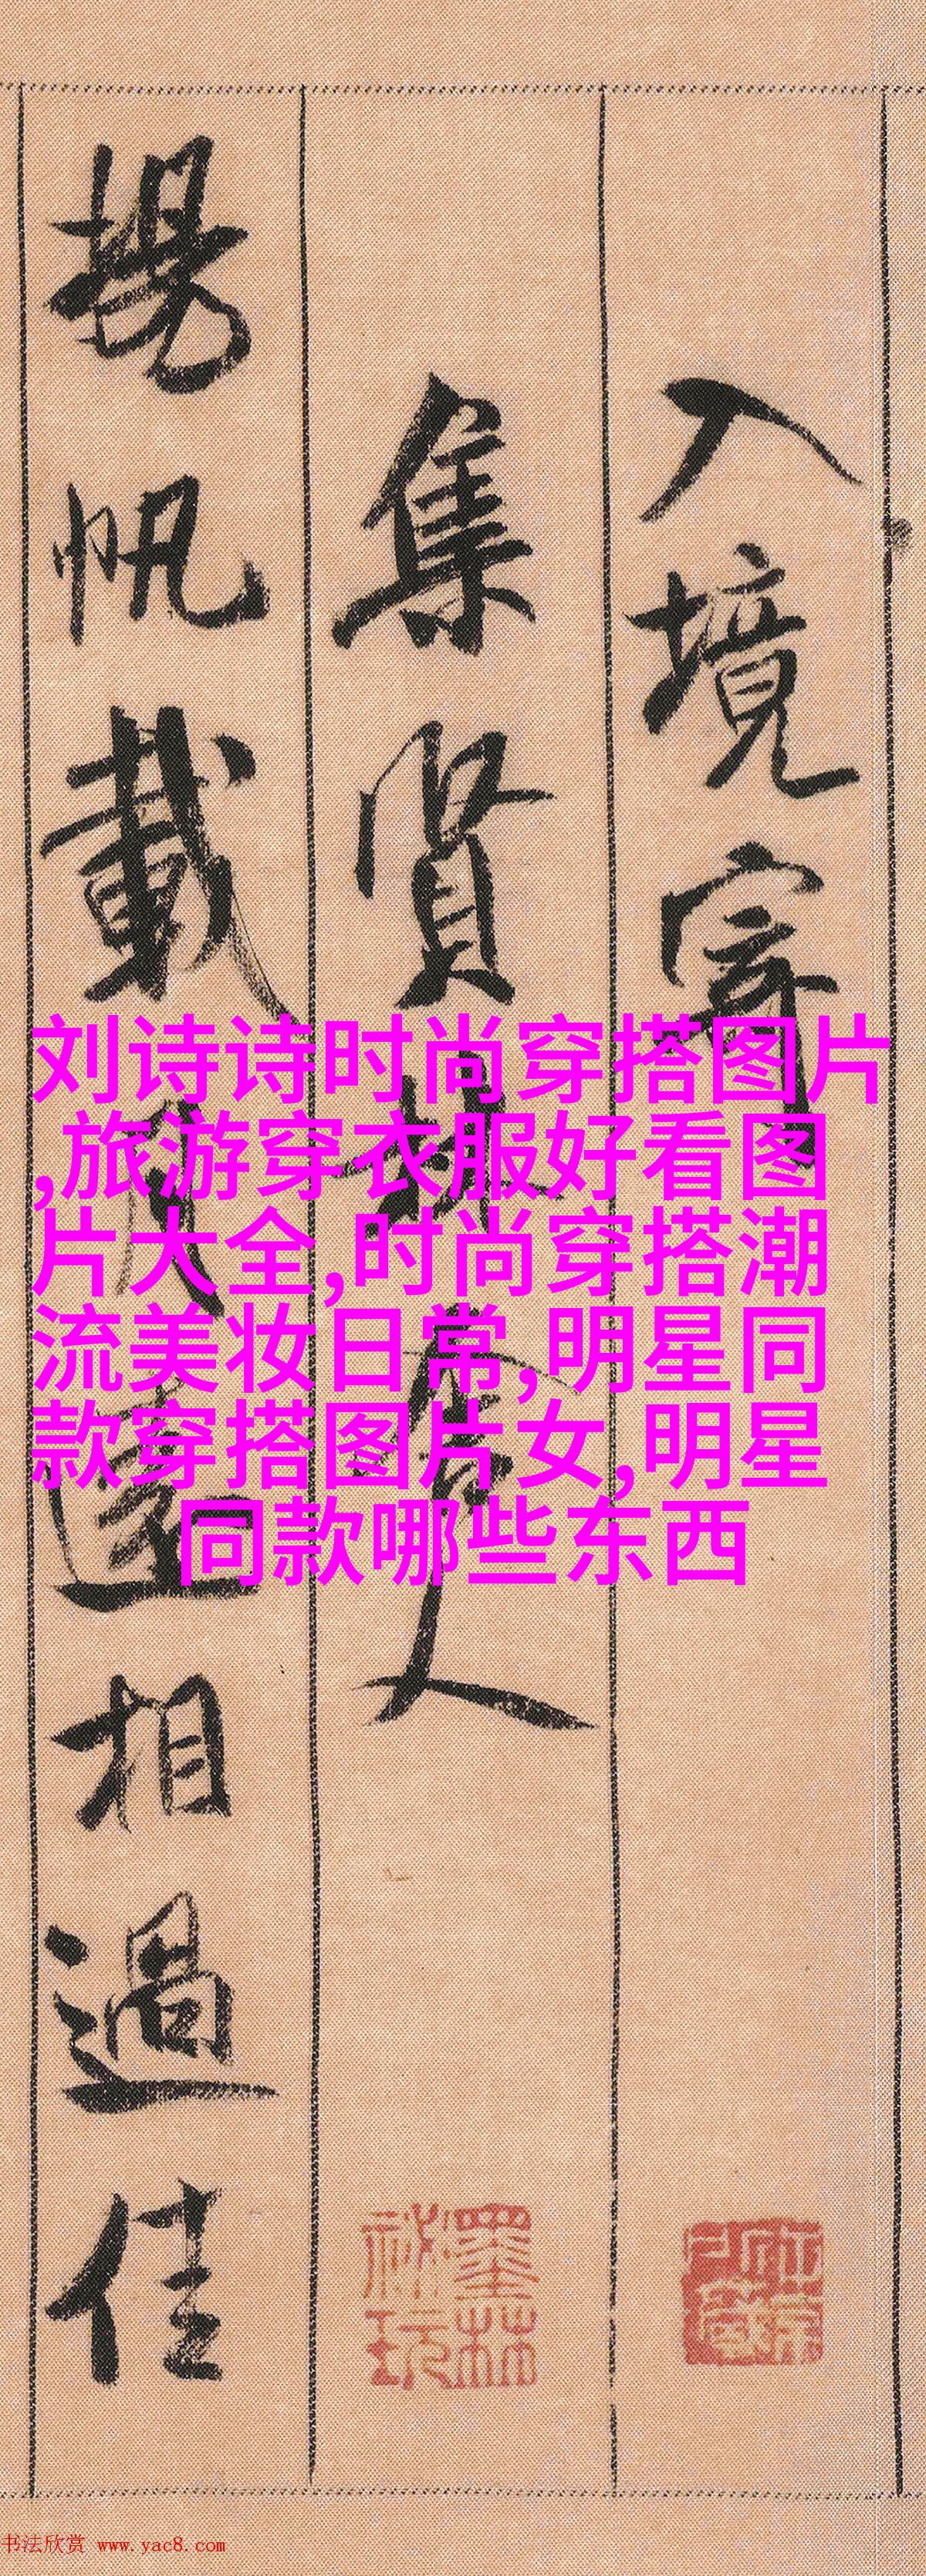 入境寄
集賢林舍人
揚帆載月遠相過佳
刘诗诗时尚穿搭图片
,旅游穿衣服好看图
片大全,时尚穿搭潮
流美妆日常,明星同
款穿搭图片女,明星
同款哪些东西
墨林
祕玩
书法欣赏 www.yac8.com